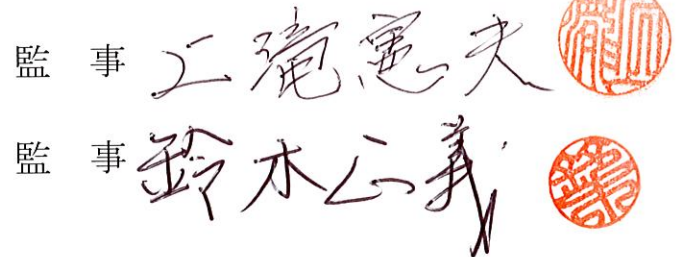 監事 上滝憲夫
監事 鈴木公義